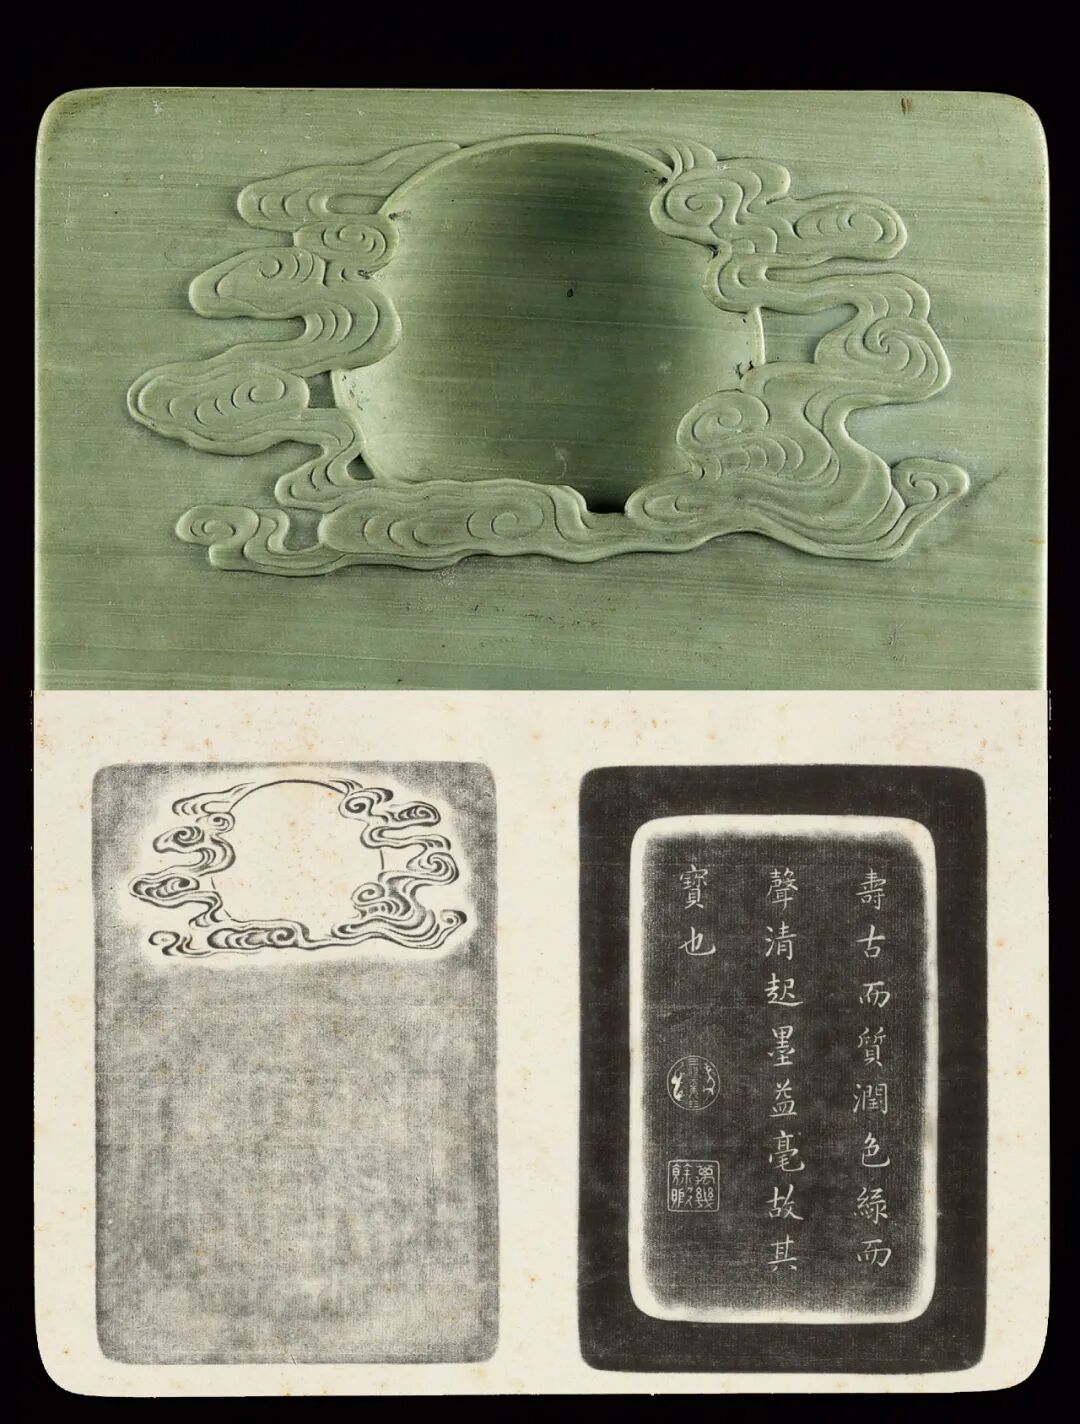 壽古而質潤色綠而
聲清起墨益毫故其
寶也
萬幾
餘暇